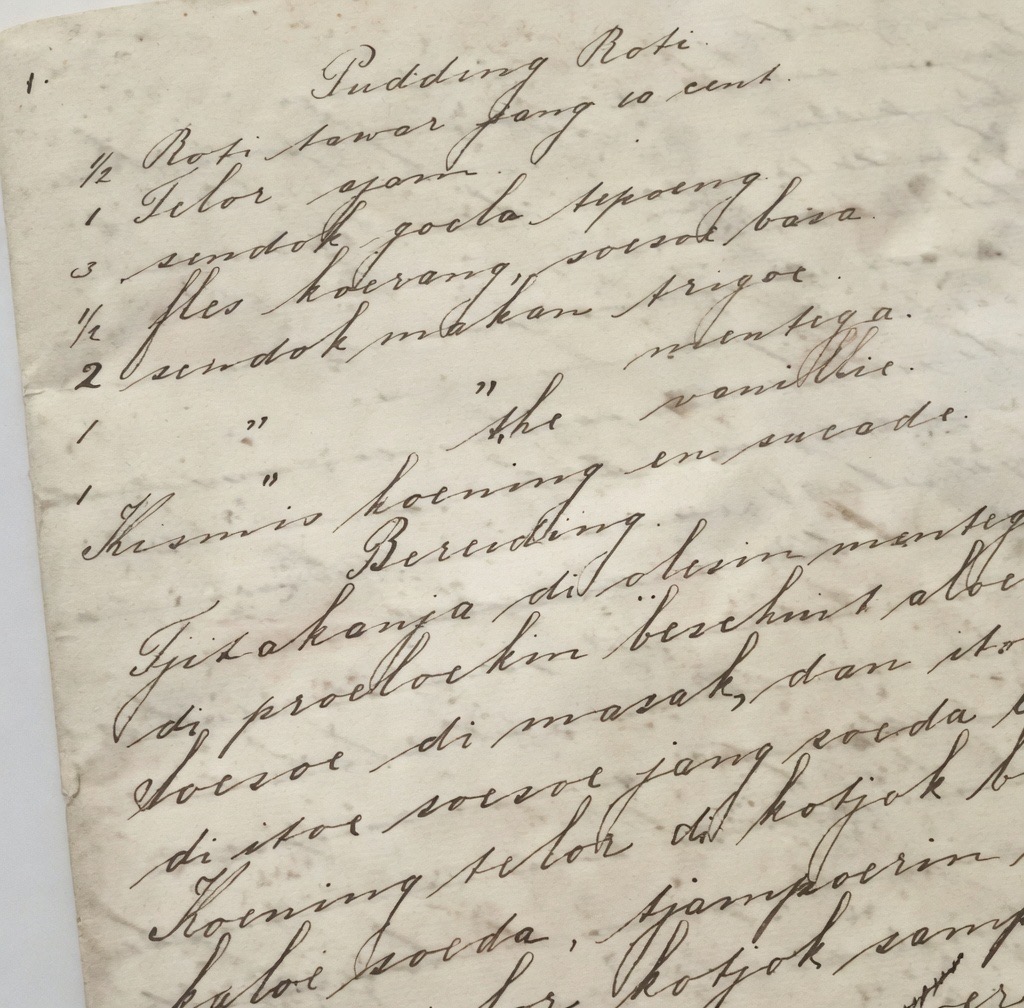 1.
Pudding Roti.
1/2 Roti tawar jang 10 cent.
1 Telor ajam.
3 sendok goela tepoeng.
1/2 fles koerang, soesoe basa.
2 sendok makan trigoe.
1 " " mentega.
1 " the vanillie.
Kismis koening en sucade.
Bereiding.
Tjitakanja di olesin menteg
di proeloekin beschuit aloe
soesoe di masak, dan ito
di itoe soesoe jang soeda
Koening telor di kotjok b
kaloe soeda, tjampoerin
kotjok samp